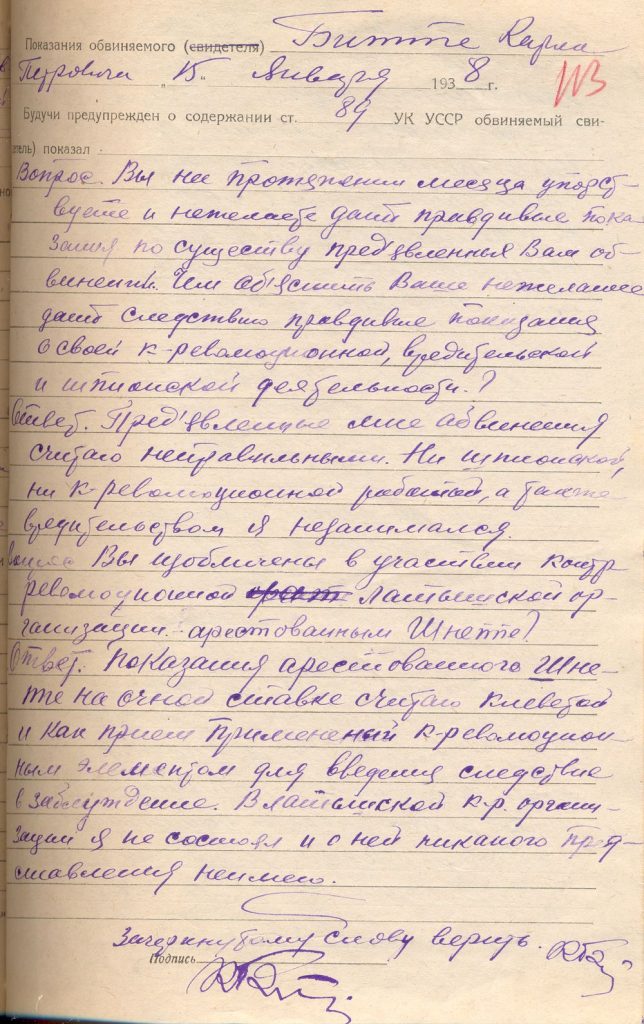 Показания обвиняемого (свидетеля) Битте Карла
Петровича „15" Января 1938 г.
113
Будучи предупрежден о содержании ст. 89 УК УССР обвиняемый сви-
тель) показал
Вопрос. Вы на протяжении месяца упорст-
вуете и нежелаете дать правдивые пока-
зания по существу пред'явленных Вам об-
винений. Чем об'яснить Ваше нежелание
дать следствию правдивые показания
о своей к-революционной, вредительской
и шпионской деятельности.?
Ответ. Пред'явленные мне обвинения
считаю неправильными. Ни шпионской,
ни к-революционной работой, а также
вредительством я незанимался.
Вопрос Вы изобличены в участии контр
революционной латышской ор-
ганизации арестованным Шнепте?
Ответ. Показания арестованного Шне-
пте на очной ставке считаю клеветой
и как прием примененый к-революцион-
ным элементом для введения следствие
в заблуждение. В латышской к.р. органи-
зации я не состоял и о ней никакого пред-
ставления неимею.
Зачеркнутому слову верить.
Подпись